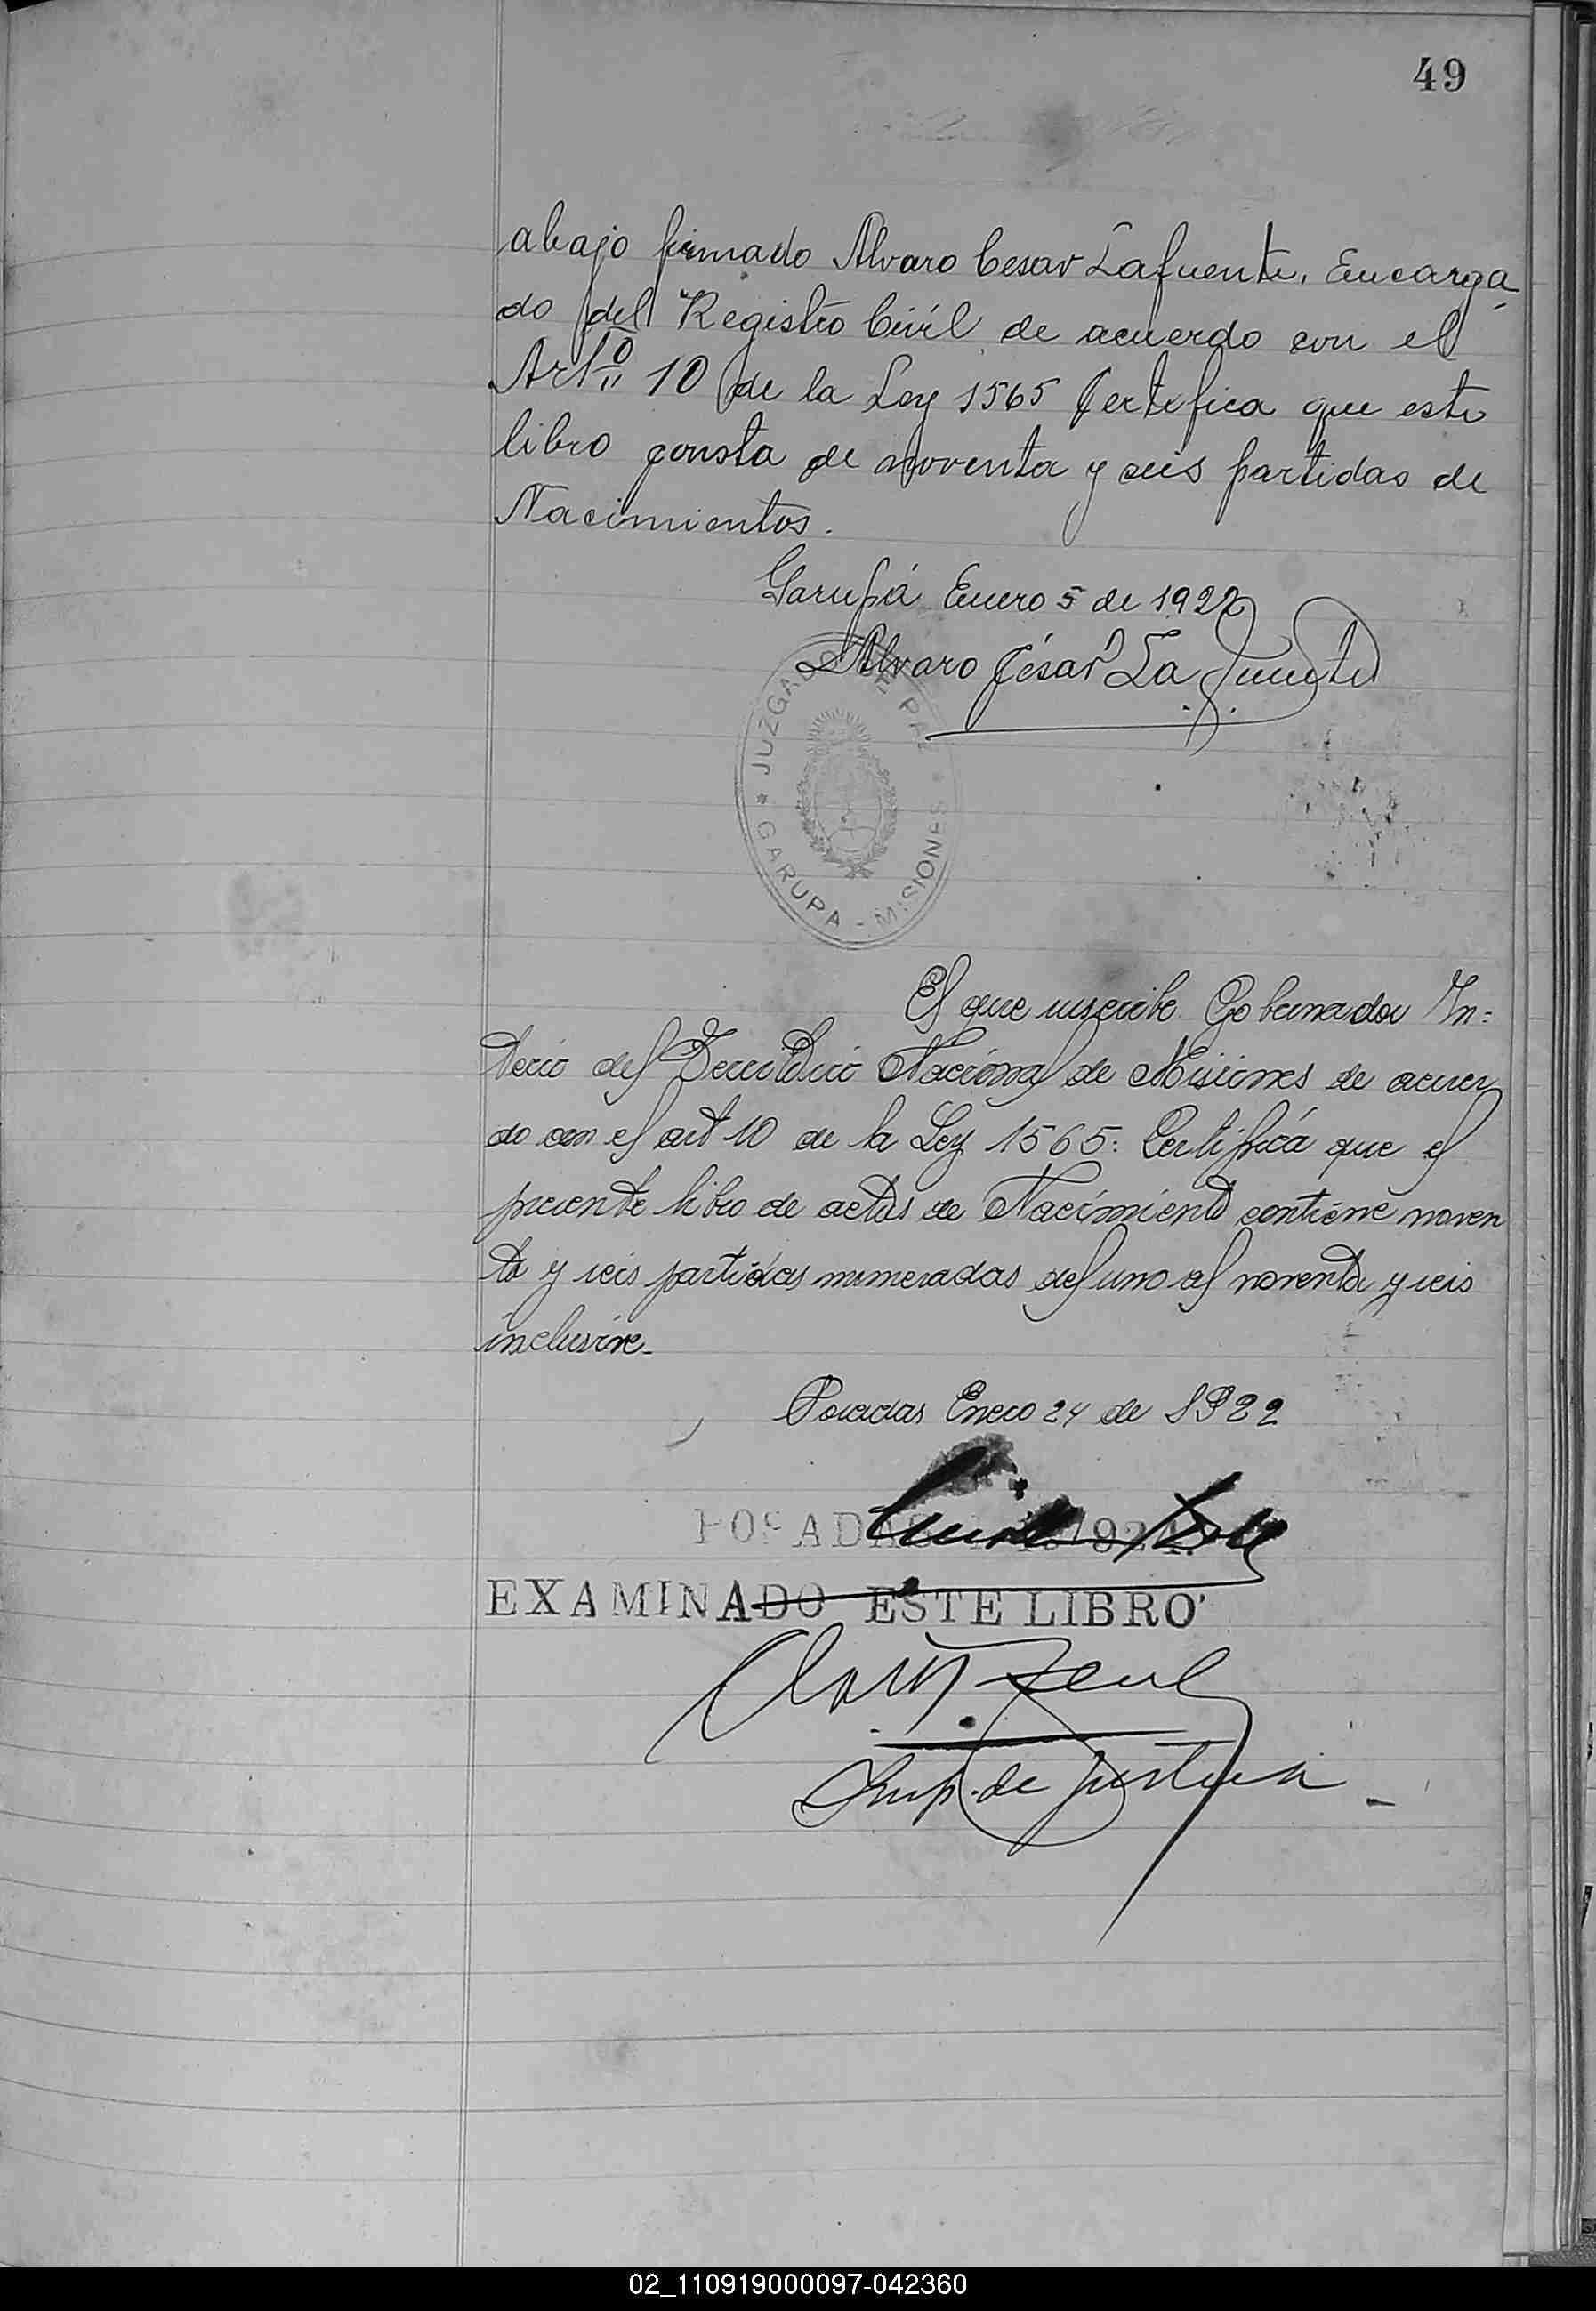 49
abajo firmado Alvaro Cesar Lafuente, Encarga
do del Registro Civil de acuerdo con el
Artº 10 de la Ley 1565 Certifica que este
libro consta de noventa y seis partidas de
Nacimientos.
Garupá Enero 5 de 1922
Alvaro César La Fuente
JUZGADO DE PAZ
* GARUPA - MISIONES *
El que suscribe Gobernador In=
terio del Territorio Nacional de Misiones de acuer
do con el art 10 de la Ley 1565: Certifica que el
presente libro de actas de Nacimiento contiene noven
ta y seis partidas numeradas del uno al noventa y seis
inclusive.
Posadas Enero 24 de 1922
POSADAS
EXAMINADO ESTE LIBRO
Insp. de Justicia
02_110919000097-042360